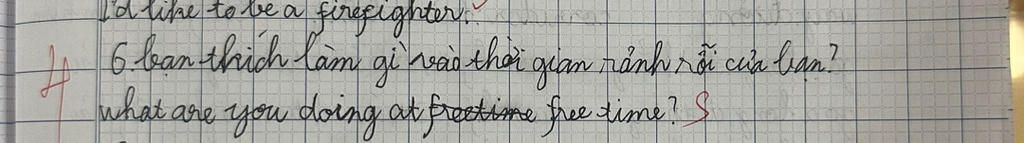 I'd like to be a firefighter.
4 6. bạn thích làm gì vào thời gian rảnh rỗi của bạn?
what are you doing at freetime free time? S